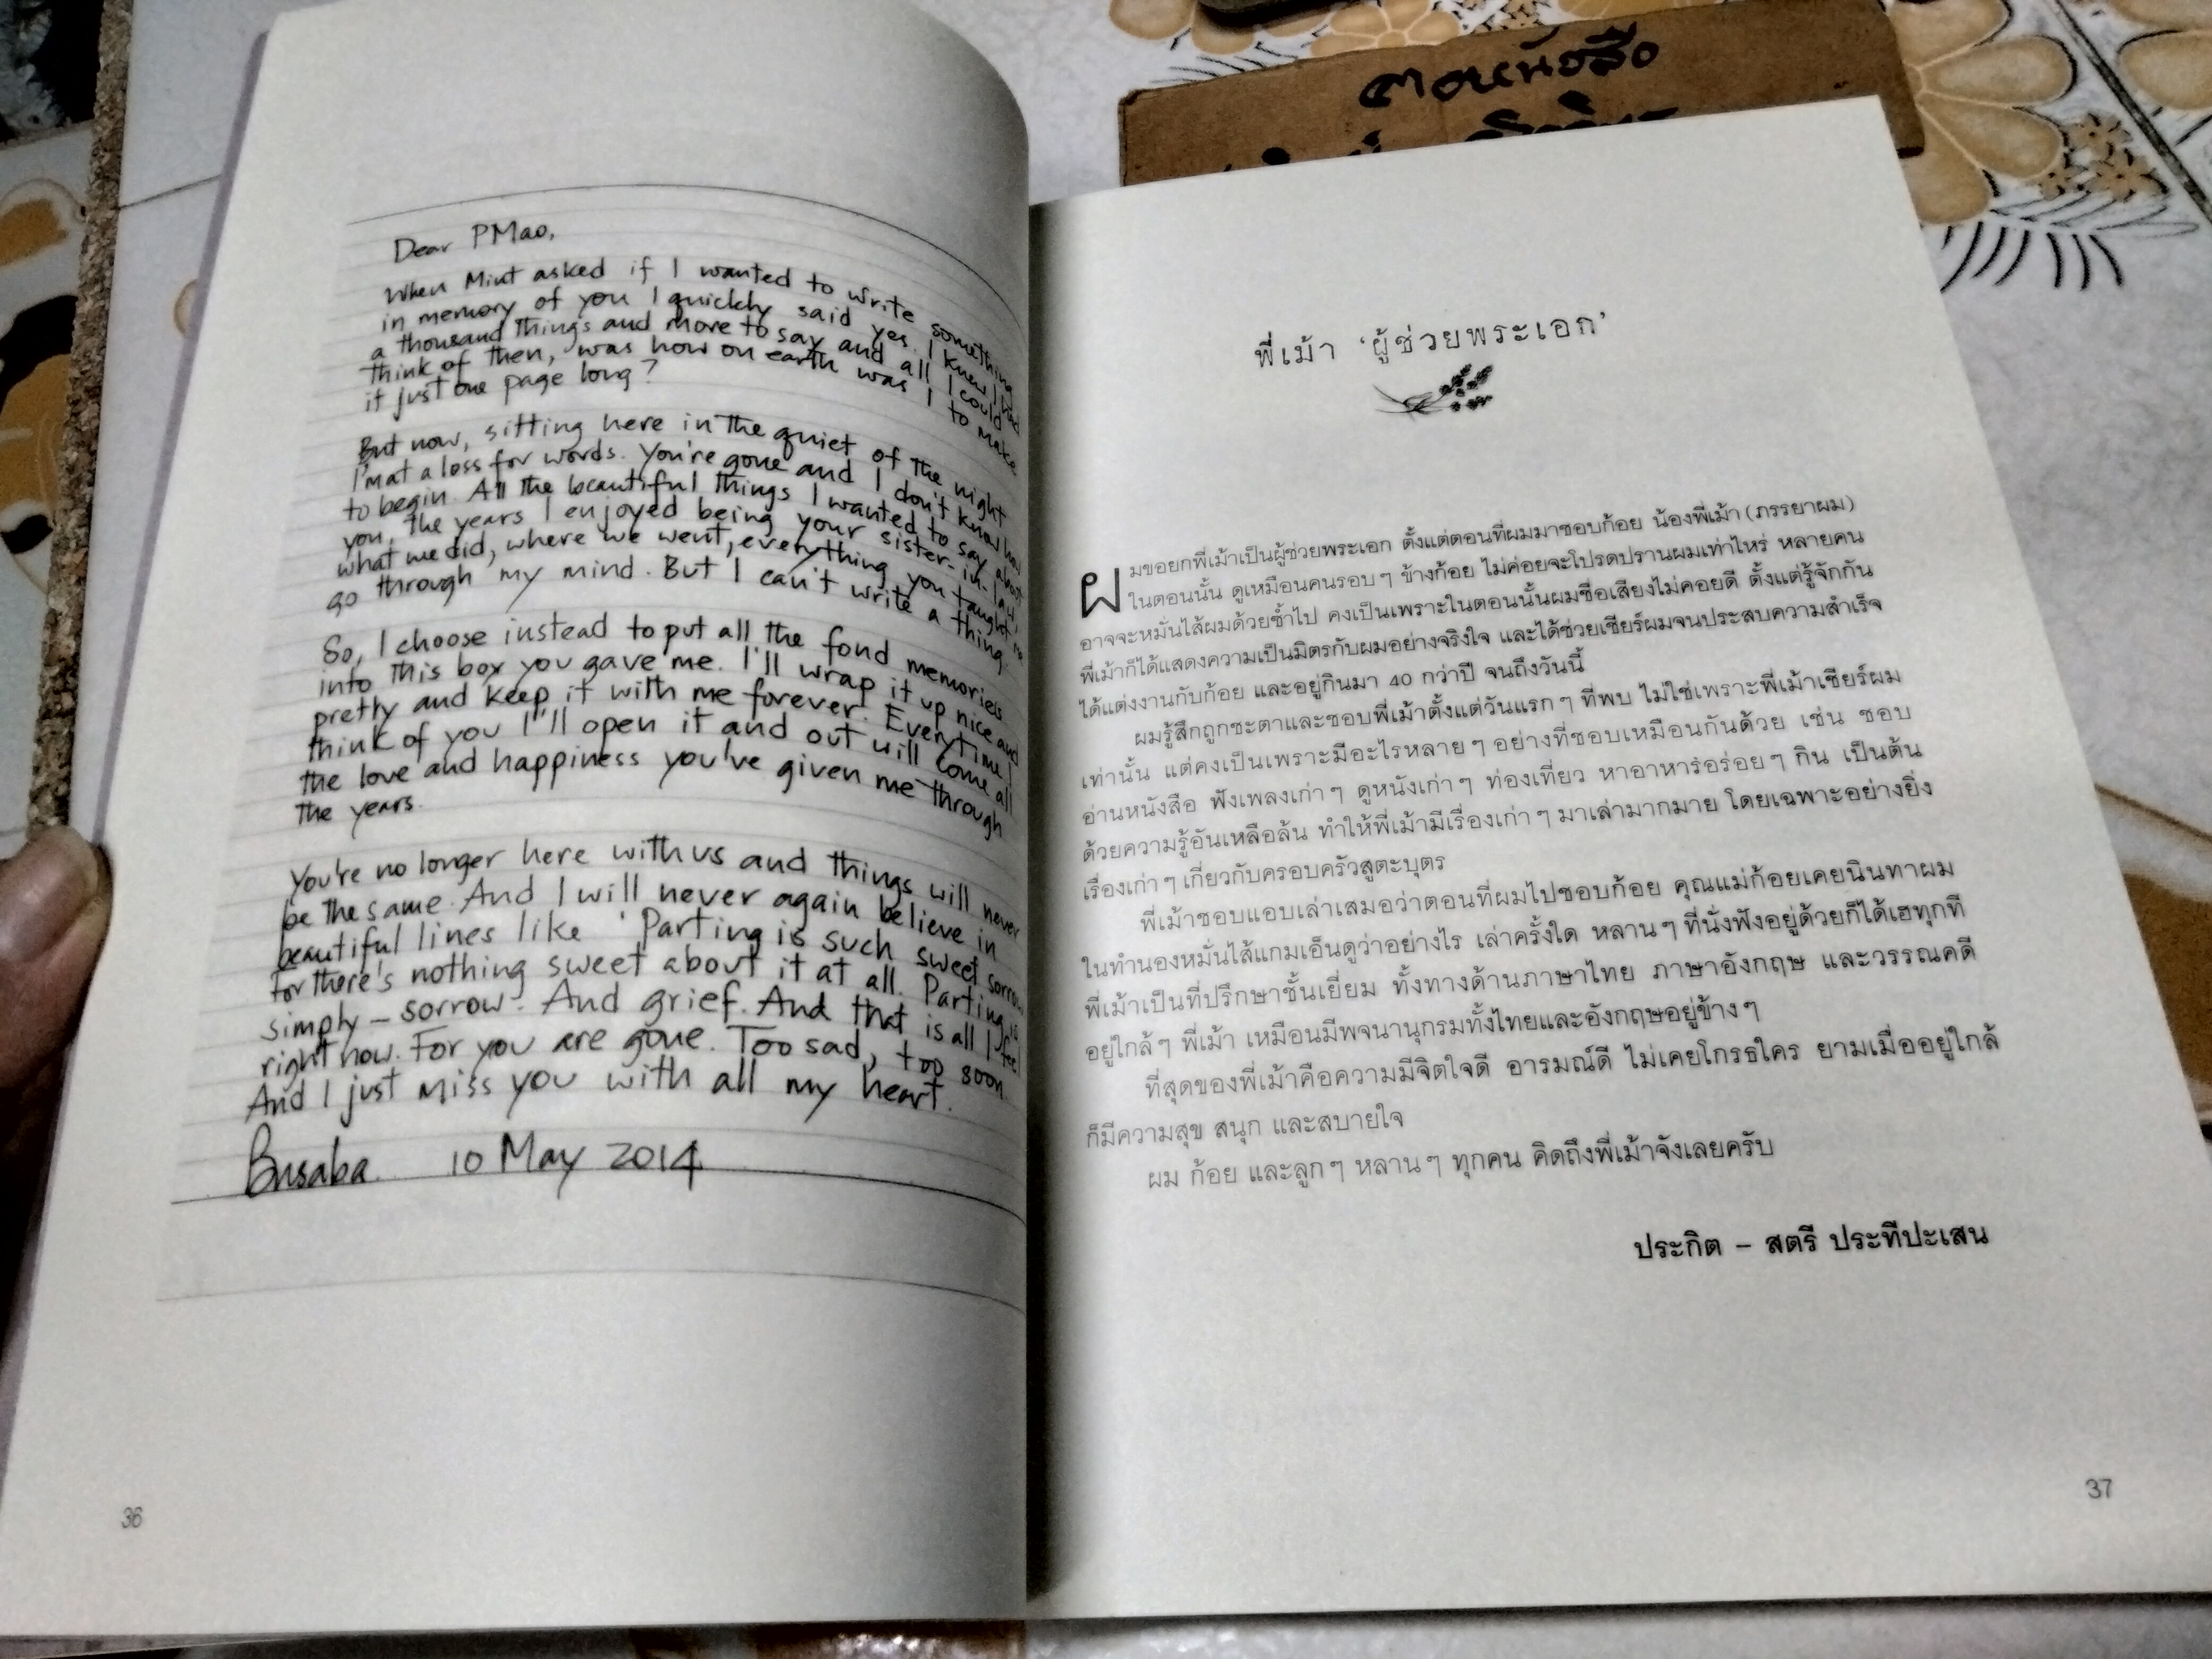 Dear PMao,
When Mint asked if I wanted to write something
in memory of you I quickly said yes. I knew I had
a thousand things and more to say and all I could
think of then, was how on earth was I to make
it just one page long?
But now, sitting here in the quiet of the night
I'm at a loss for words. You're gone and I don't know how
to begin. All the beautiful things I wanted to say about
you, the years I enjoyed being your sister-in-law,
what we did, where we went, everything you taught me
go through my mind. But I can't write a thing.
So, I choose instead to put all the fond memories
into this box you gave me. I'll wrap it up nice and
pretty and keep it with me forever. Everytime I
think of you I'll open it and out will come all
the love and happiness you've given me through
the years.
You're no longer here with us and things will never
be the same. And I will never again believe in
beautiful lines like 'Parting is such sweet sorrow
for there's nothing sweet about it at all. Parting is
simply – sorrow. And grief. And that is all I feel
right now. For you are gone. Too sad, too soon.
And I just miss you with all my heart.
Busaba. 10 May 2014
36
ตอนหนังสือ
พี่เม้า ‘ผู้ช่วยพระเอก’
ผมขอยกพี่เม้าเป็นผู้ช่วยพระเอก ตั้งแต่ตอนที่ผมมาชอบก้อย น้องพี่เม้า (ภรรยาผม)
ในตอนนั้น ดูเหมือนคนรอบๆ ข้างก้อย ไม่ค่อยจะโปรดปรานผมเท่าไหร่ หลายคน
อาจจะหมั่นไส้ผมด้วยซ้ำไป คงเป็นเพราะในตอนนั้นผมชื่อเสียงไม่คอยดี ตั้งแต่รู้จักกัน
พี่เม้าก็ได้แสดงความเป็นมิตรกับผมอย่างจริงใจ และได้ช่วยเชียร์ผมจนประสบความสำเร็จ
ได้แต่งงานกับก้อย และอยู่กินมา 40 กว่าปี จนถึงวันนี้
ผมรู้สึกถูกชะตาและชอบพี่เม้าตั้งแต่วันแรกๆ ที่พบ ไม่ใช่เพราะพี่เม้าเชียร์ผม
เท่านั้น แต่คงเป็นเพราะมีอะไรหลายๆ อย่างที่ชอบเหมือนกันด้วย เช่น ชอบ
อ่านหนังสือ ฟังเพลงเก่าๆ ดูหนังเก่าๆ ท่องเที่ยว หาอาหารอร่อยๆ กิน เป็นต้น
ด้วยความรู้อันเหลือล้น ทำให้พี่เม้ามีเรื่องเก่าๆ มาเล่ามากมาย โดยเฉพาะอย่างยิ่ง
เรื่องเก่าๆ เกี่ยวกับครอบครัวสูตะบุตร
พี่เม้าชอบแอบเล่าเสมอว่าตอนที่ผมไปชอบก้อย คุณแม่ก้อยเคยนินทาผม
ในทำนองหมั่นไส้แกมเอ็นดูว่าอย่างไร เล่าครั้งใด หลานๆ ที่นั่งฟังอยู่ด้วยก็ได้เฮทุกที
พี่เม้าเป็นที่ปรึกษาชั้นเยี่ยม ทั้งทางด้านภาษาไทย ภาษาอังกฤษ และวรรณคดี
อยู่ใกล้ๆ พี่เม้า เหมือนมีพจนานุกรมทั้งไทยและอังกฤษอยู่ข้างๆ
ที่สุดของพี่เม้าคือความมีจิตใจดี อารมณ์ดี ไม่เคยโกรธใคร ยามเมื่ออยู่ใกล้
ก็มีความสุข สนุก และสบายใจ
ผม ก้อย และลูกๆ หลานๆ ทุกคน คิดถึงพี่เม้าจังเลยครับ
ประกิต – สตรี ประทีปะเสน
37